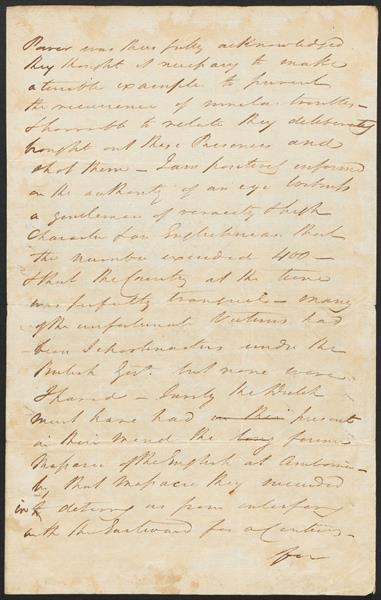 Power was thus fully acknowledged
they thought it necessary to make
a terrible example to prevent
the recurrence of similar troubles -
& horrible to relate they deliberately
brought out these Prisoners and
shot them - I am positively informed
on the authority of an eye witness
a gentleman of veracity & high
Character & an Englishman that
the number exceeded 400 -
& that the Country at the time
was perfectly tranquil - many
of the unfortunate Victims had
been Schoolmasters under the
British Govt. but none were
Spared - surely the Dutch
must have had in their present
in their mind the long former
Massacre of the English at Amboina -
by that Massacre they succeeded
in deterring us from interfering
with the Eastward for a Century -
for